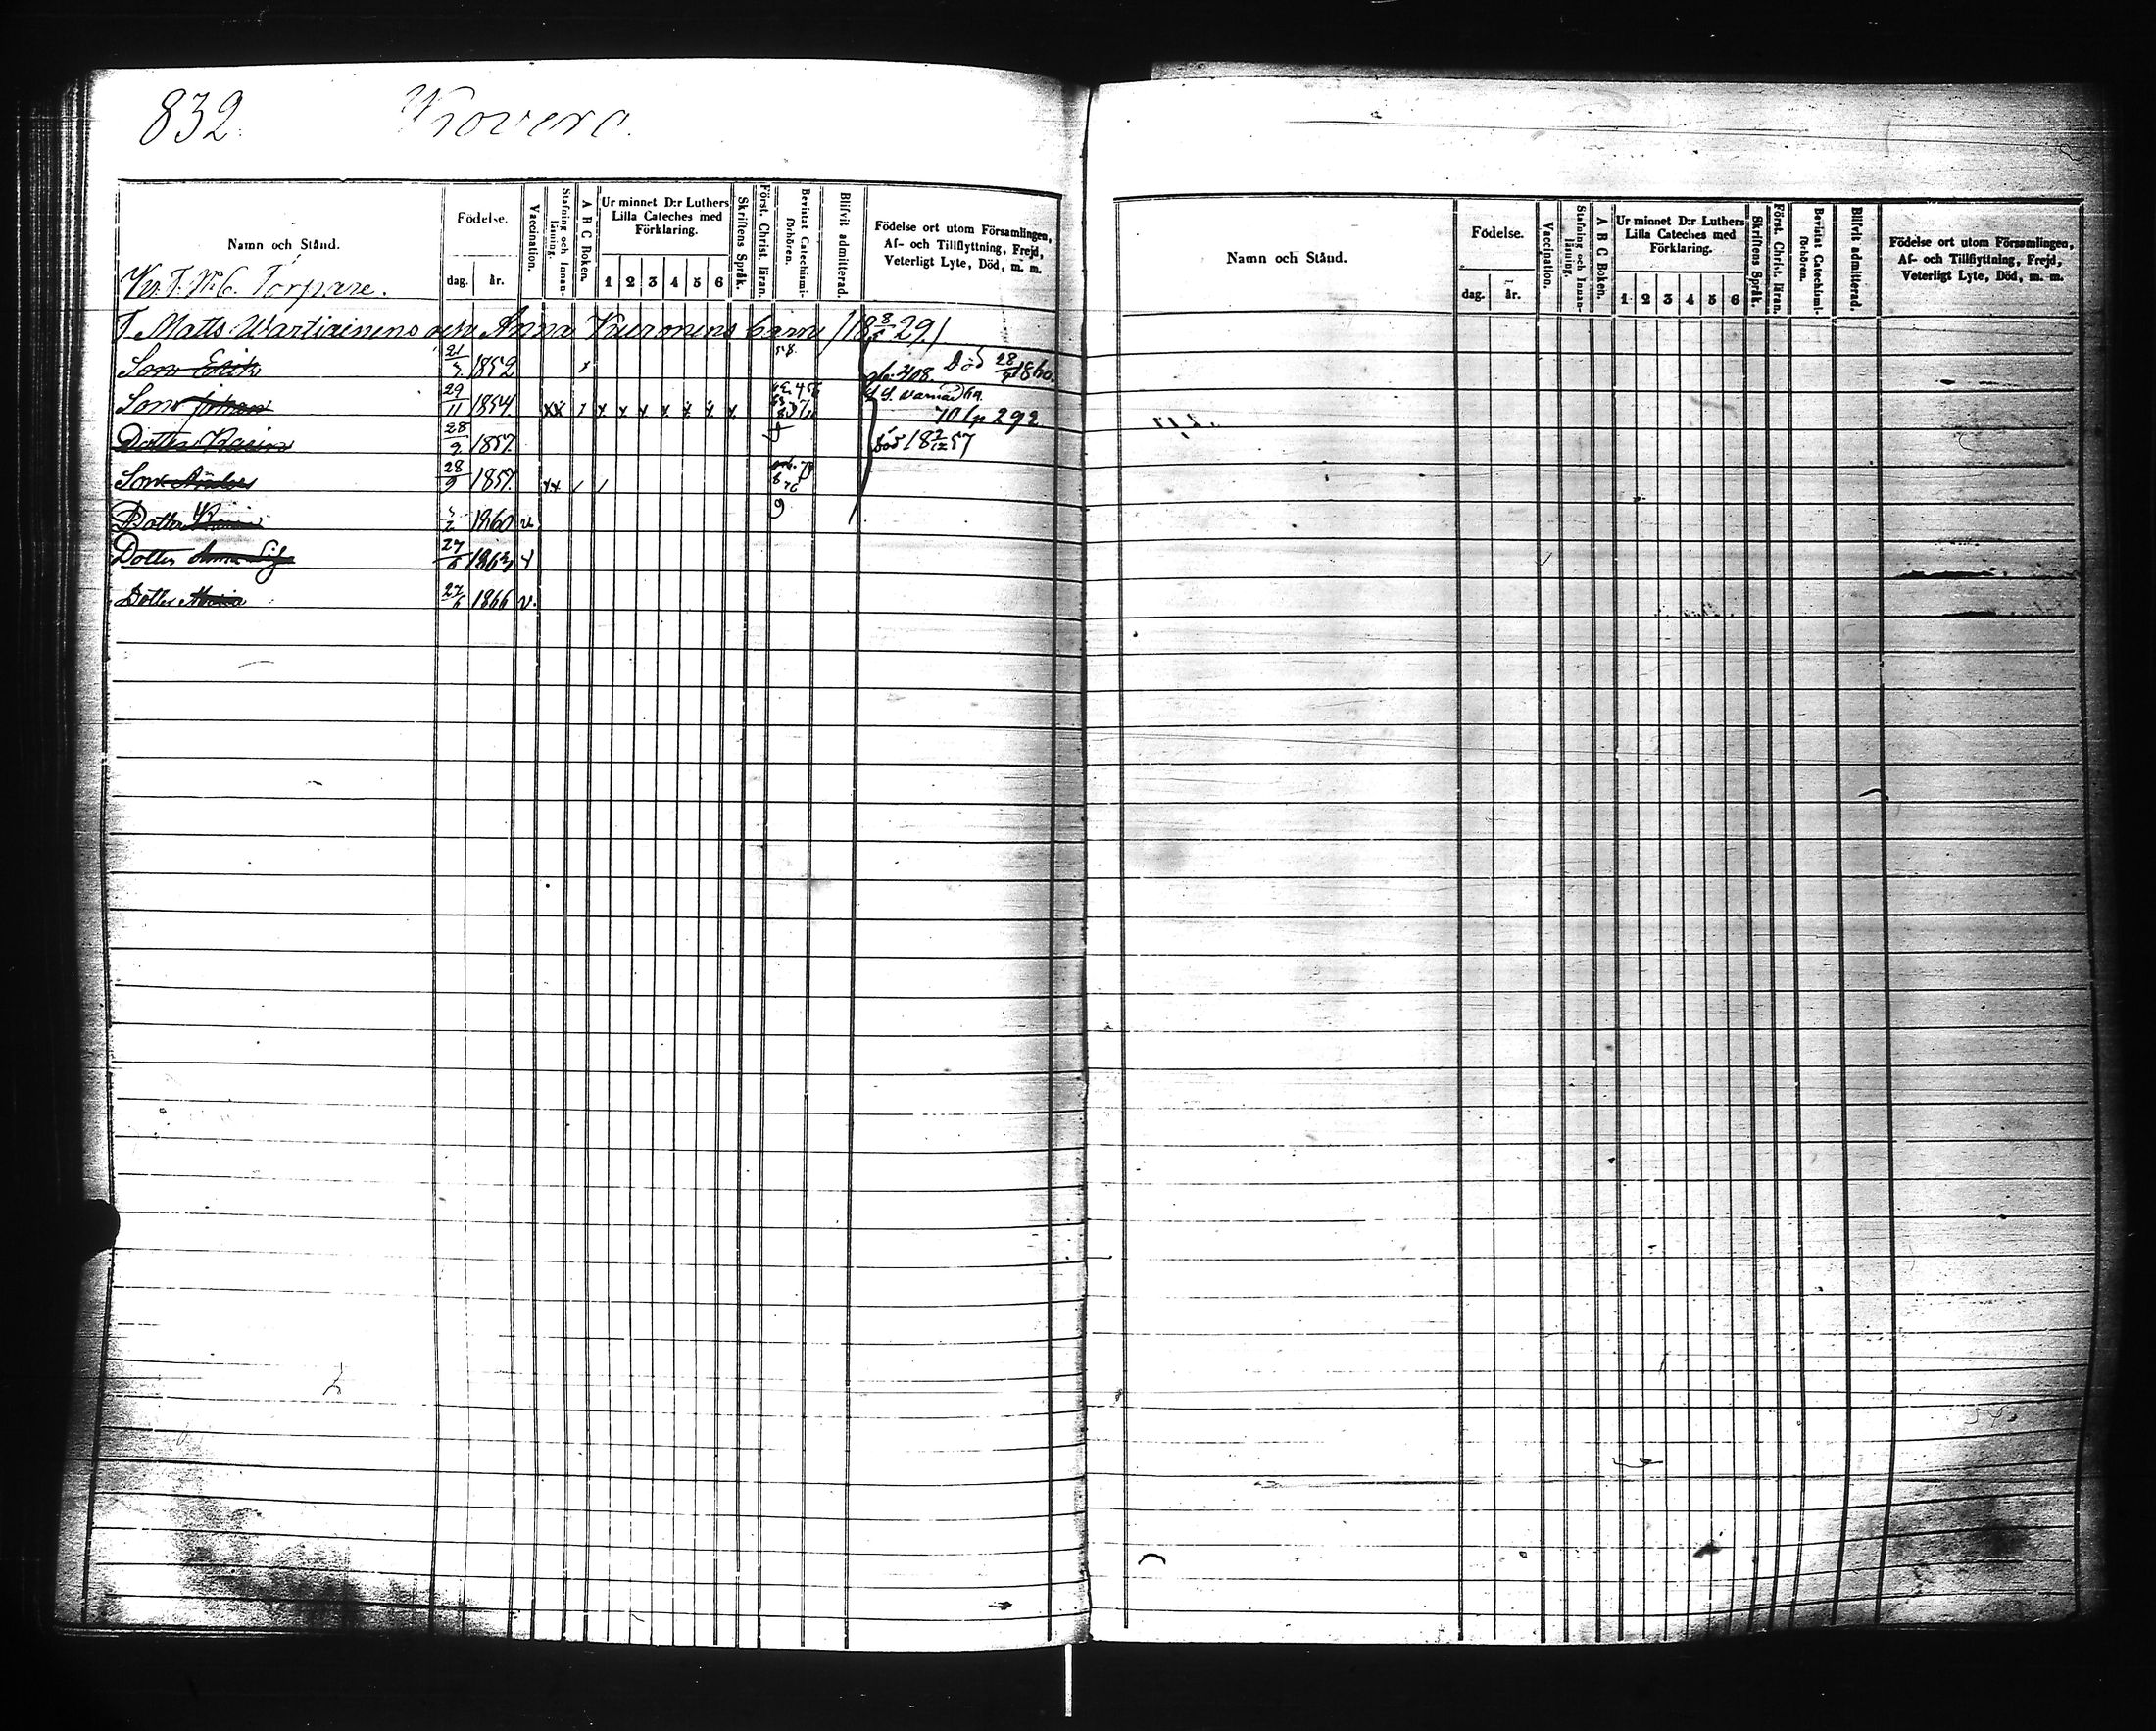 832. Kovero.
Namn och Stånd.
Födelse.
dag. år.
Vaccination.
Stafning och Innan-läsning.
A B C Boken.
Ur minnet D:r Luthers Lilla Cateches med Förklaring.
1 2 3 4 5 6
Skriftens Språk.
Först. Christ. läran.
Bevistat Catechismi-förhören.
Blifvit admitterad.
Födelse ort utom Församlingen, Af- och Tillflyttning, Frejd, Veterligt Lyte, Död, m. m.
Torpare.
T. Matts Wartiainens och Anna Kuronens barn
Son Erik 21 1852 58. Död 28 1860.
Son Johan 29/11 1854. xx
70 292
Dotter Karin 28/9 1857. död 18 2/12 57
Son Anders 28/9 1857. xx
Dotter 1860 v
Dotter Anna 27 1863
Dotter Maria 27/6 1866 v.
Namn och Stånd.
Födelse.
dag. år.
Vaccination.
Stafning och Innan-läsning.
A B C Boken.
Ur minnet D:r Luthers Lilla Cateches med Förklaring.
1 2 3 4 5 6
Skriftens Språk.
Först. Christ. läran.
Bevistat Catechismi-förhören.
Blifvit admitterad.
Födelse ort utom Församlingen, Af- och Tillflyttning, Frejd, Veterligt Lyte, Död, m. m.